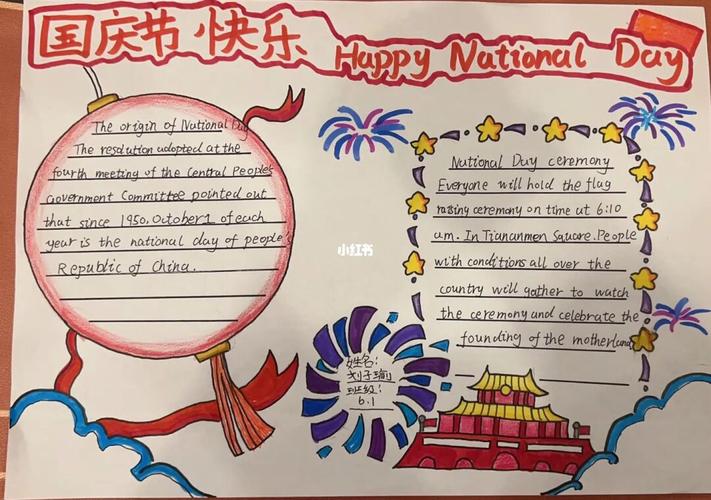 国庆节 快乐 Happy National Day
The origin of National Day
The resolution adopted at the
fourth meeting of the Central People's
Government Committee pointed out
that since 1950, October 1 of each
year is the national day of people's
Republic of China.
National Day ceremony
Everyone will hold the flag
raising ceremony on time at 6:10
am. In Tiananmen Square. People
with conditions all over the
country will gather to watch
the ceremony and celebrate the
founding of the motherland
小红书
姓名:
刘子瑜
班级:
6.1